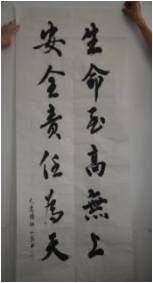 生命至高無上
安全責任為天